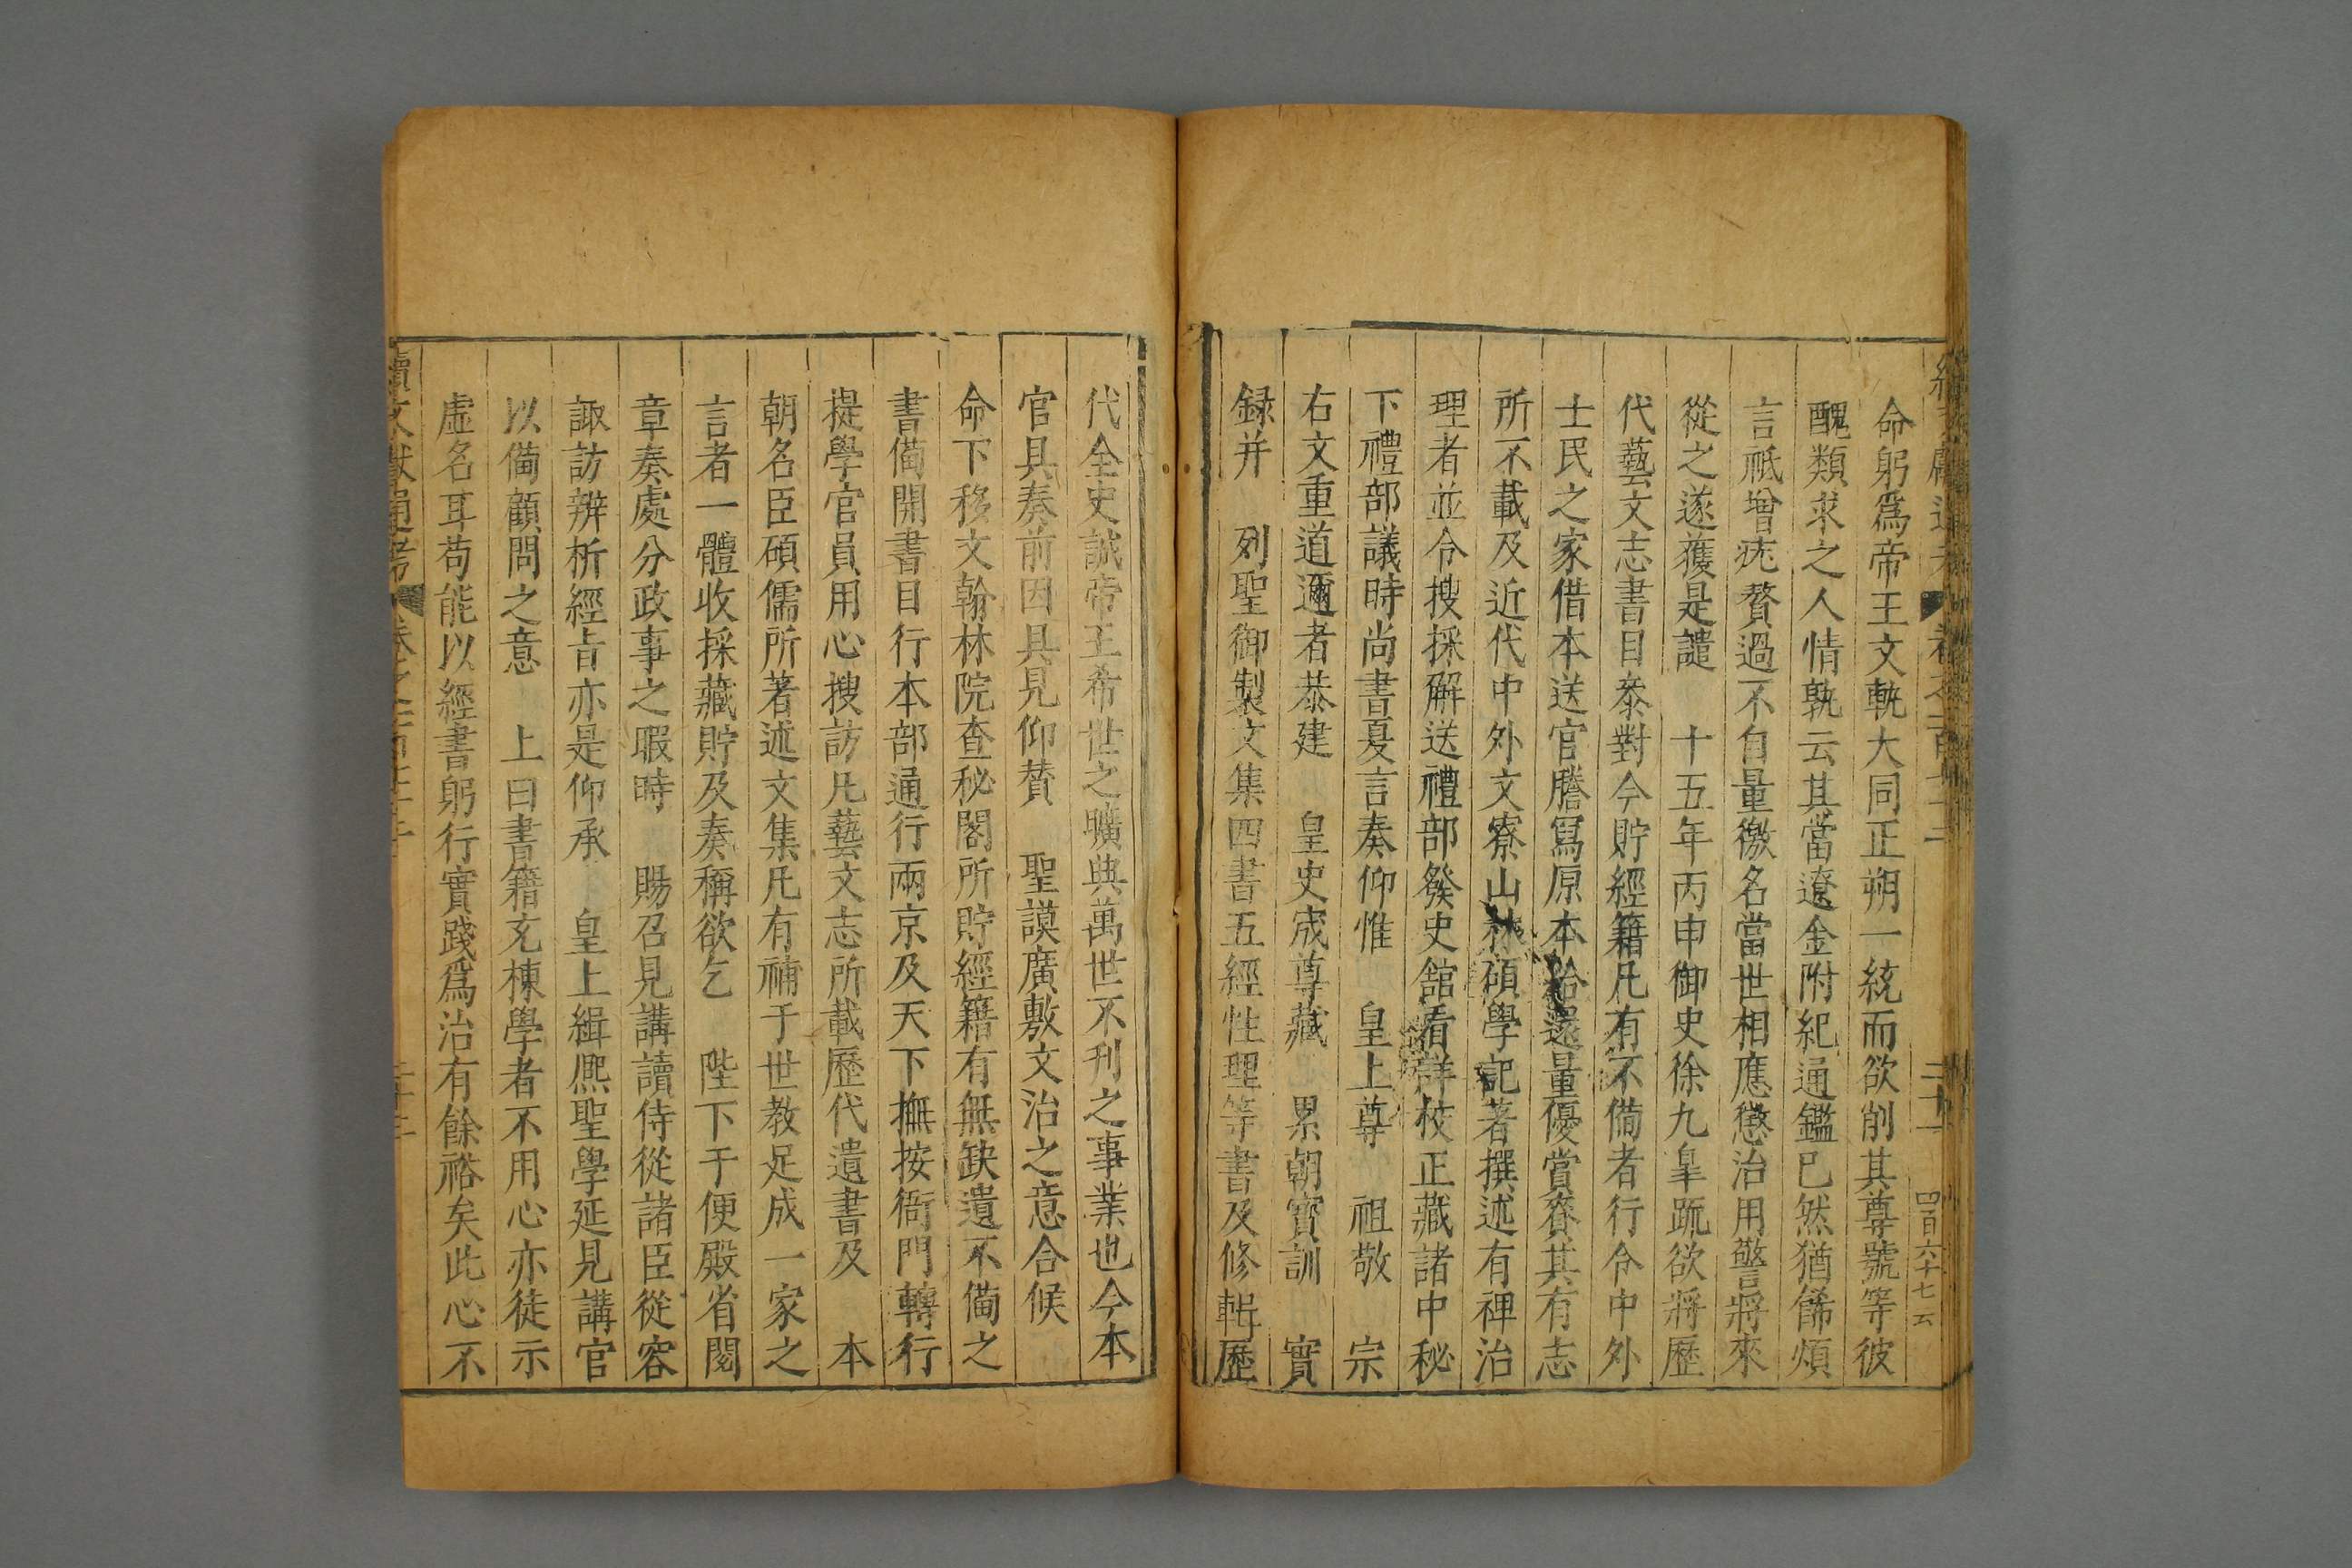 命躬爲帝王文軌大同正朔一統而欲削其尊號等彼
醜類求之人情孰云其當遼金附紀通鑑已然猶餙煩
言祗增疣贅過不自量徼名當世相應懲治用警將來
從之遂獲是譴 十五年丙申御史徐九皐䟽欲將歷
代藝文志書目叅對今貯經籍凡有不備者行令中外
士民之家借本送官謄寫原本給還量優賞賚其有志
所不載及近代中外文寮山林碩學記著撰述有裨治
理者並令搜採解送禮部發史舘看詳校正藏諸中秘
下禮部議時尚書夏言奏仰惟 皇上尊 祖敬 宗
右文重道邇者恭建 皇史宬尊藏 累朝寳訓 實
録并 列聖御製文集四書五經性理等書及修輯歷
代全史誠帝王希世之曠典萬世不刊之事業也今本
官具奏前因具見仰賛 聖謨廣敷文治之意合候
命下移文翰林院查秘閣所貯經籍有無缺遺不備之
書備開書目行本部通行兩京及天下撫按衙門轉行
提學官員用心搜訪凡藝文志所載歷代遺書及 本
朝名臣碩儒所著述文集凡有補于世教足成一家之
言者一體收採藏貯及奏稱欲乞 陛下于便殿省閱
章奏處分政事之暇時 賜召見講讀侍從諸臣從容
諏訪辨析經旨亦是仰承 皇上緝熈聖學延見講官
以備顧問之意 上曰書籍充棟學者不用心亦徒示
虛名耳苟能以經書躬行實踐爲治有餘裕矣此心不
續文獻通考
四百六十七 云